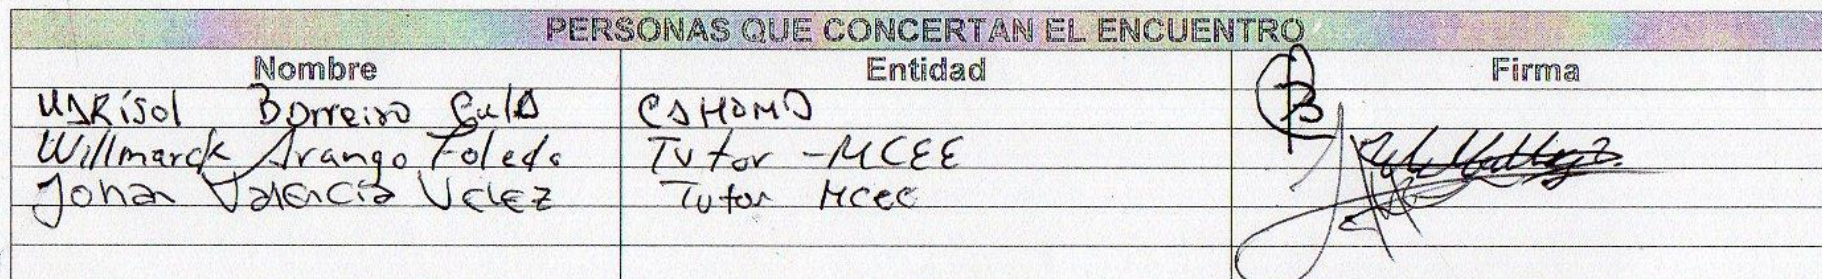 PERSONAS QUE CONCERTAN EL ENCUENTRO
Nombre Entidad Firma
Marisol Borreiro
Willmarck Arango Toledo Tutor -MCEE
Johan Valencia Velez Tutor MCEE